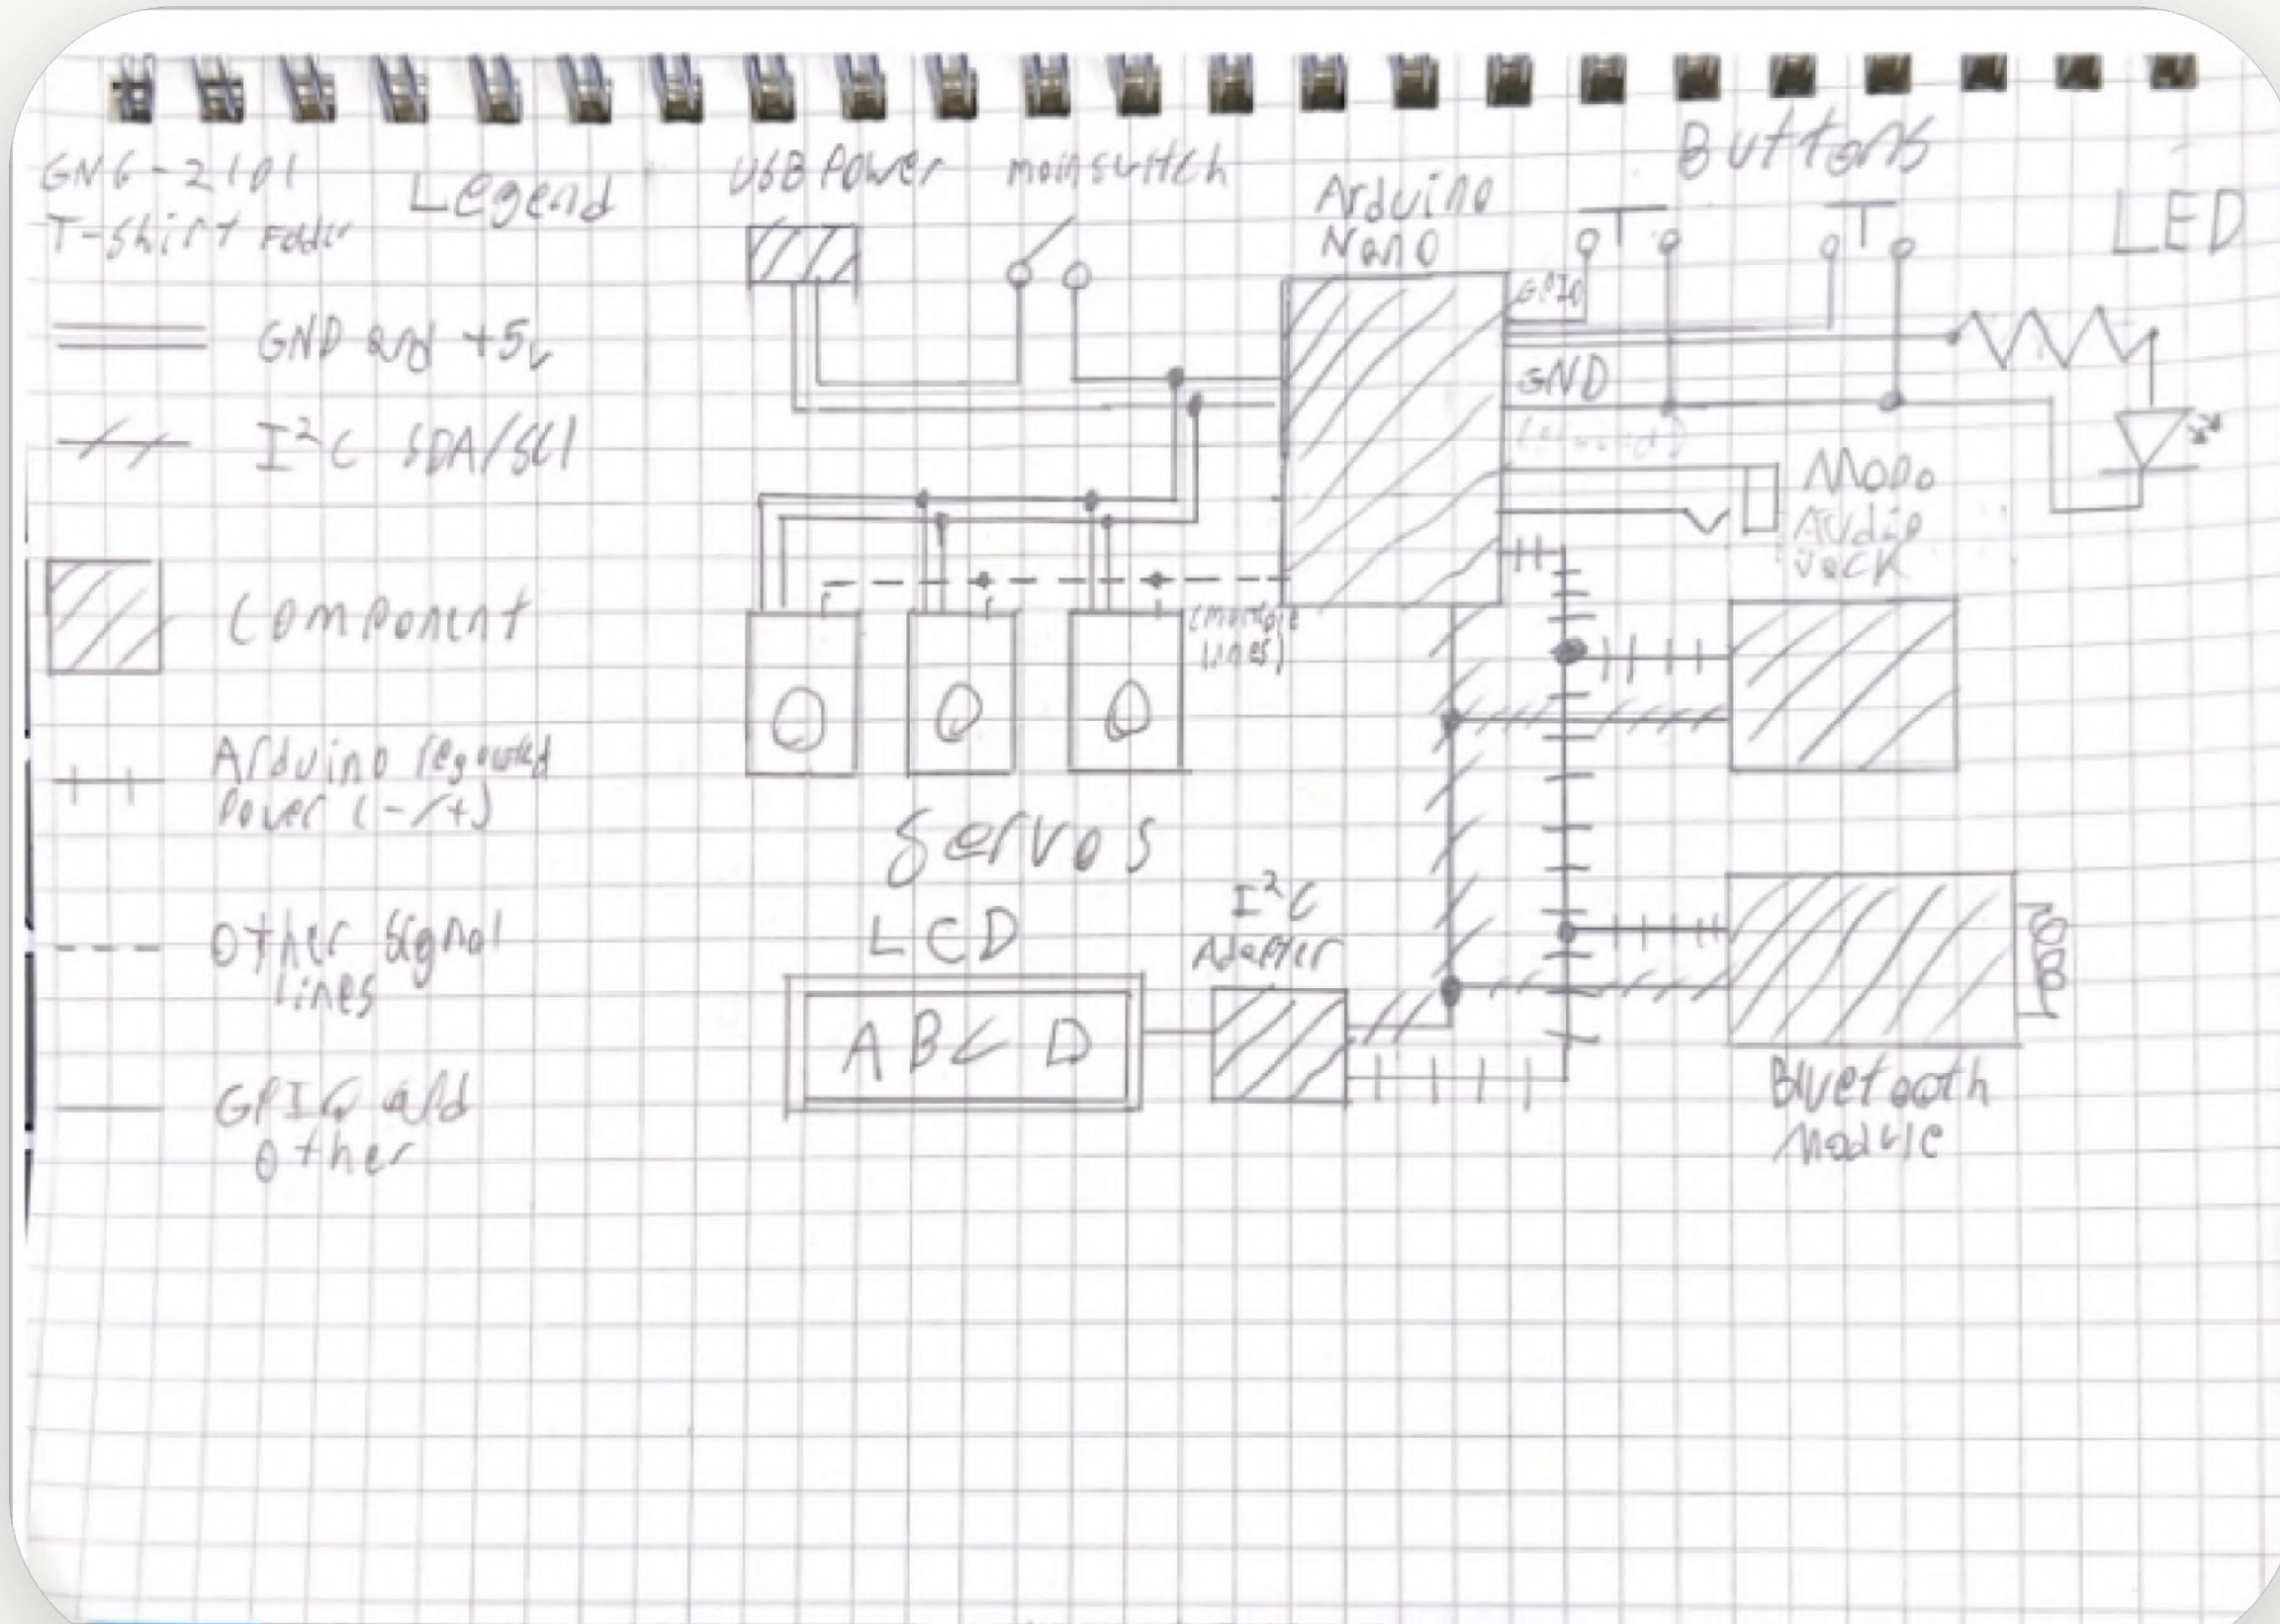 GNG-2101
T-Shirt Folder
Legend
GND and +5v
I²C SDA/SCl
Component
Arduino regulated
Power (-/+)
Other Signal
lines
GPIO and
Other
USB Power
main switch
Arduino
Nano
Buttons
LED
GPIO
GND
Mono
Audio
Jack
(Multiple
lines)
Servos
LCD
A B C D
I²C
Adapter
Bluetooth
Module